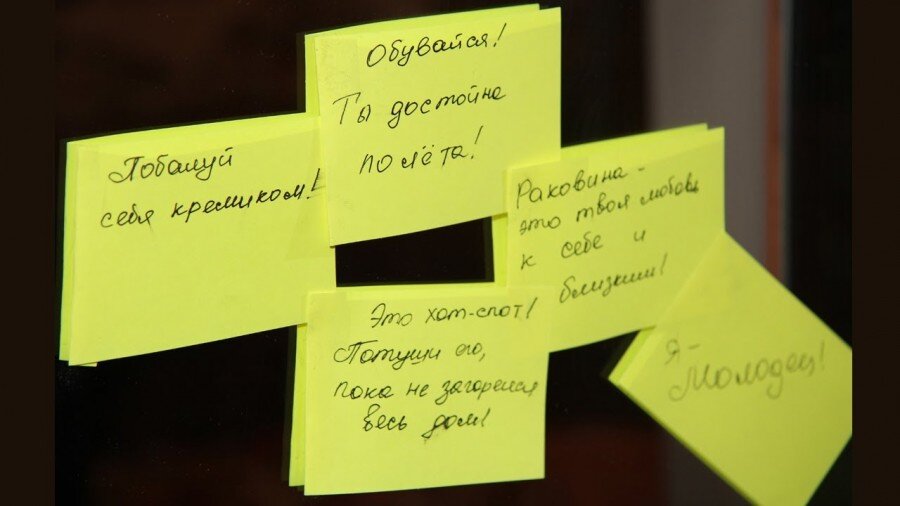 Обувайся!
Ты достойна
полёта!
Побалуй
себя кремиком!
Раковина -
это твоя любовь
к себе и
близким!
Это хот-спот!
Потуши его,
пока не загорелся
весь дом!
Я -
Молодец!